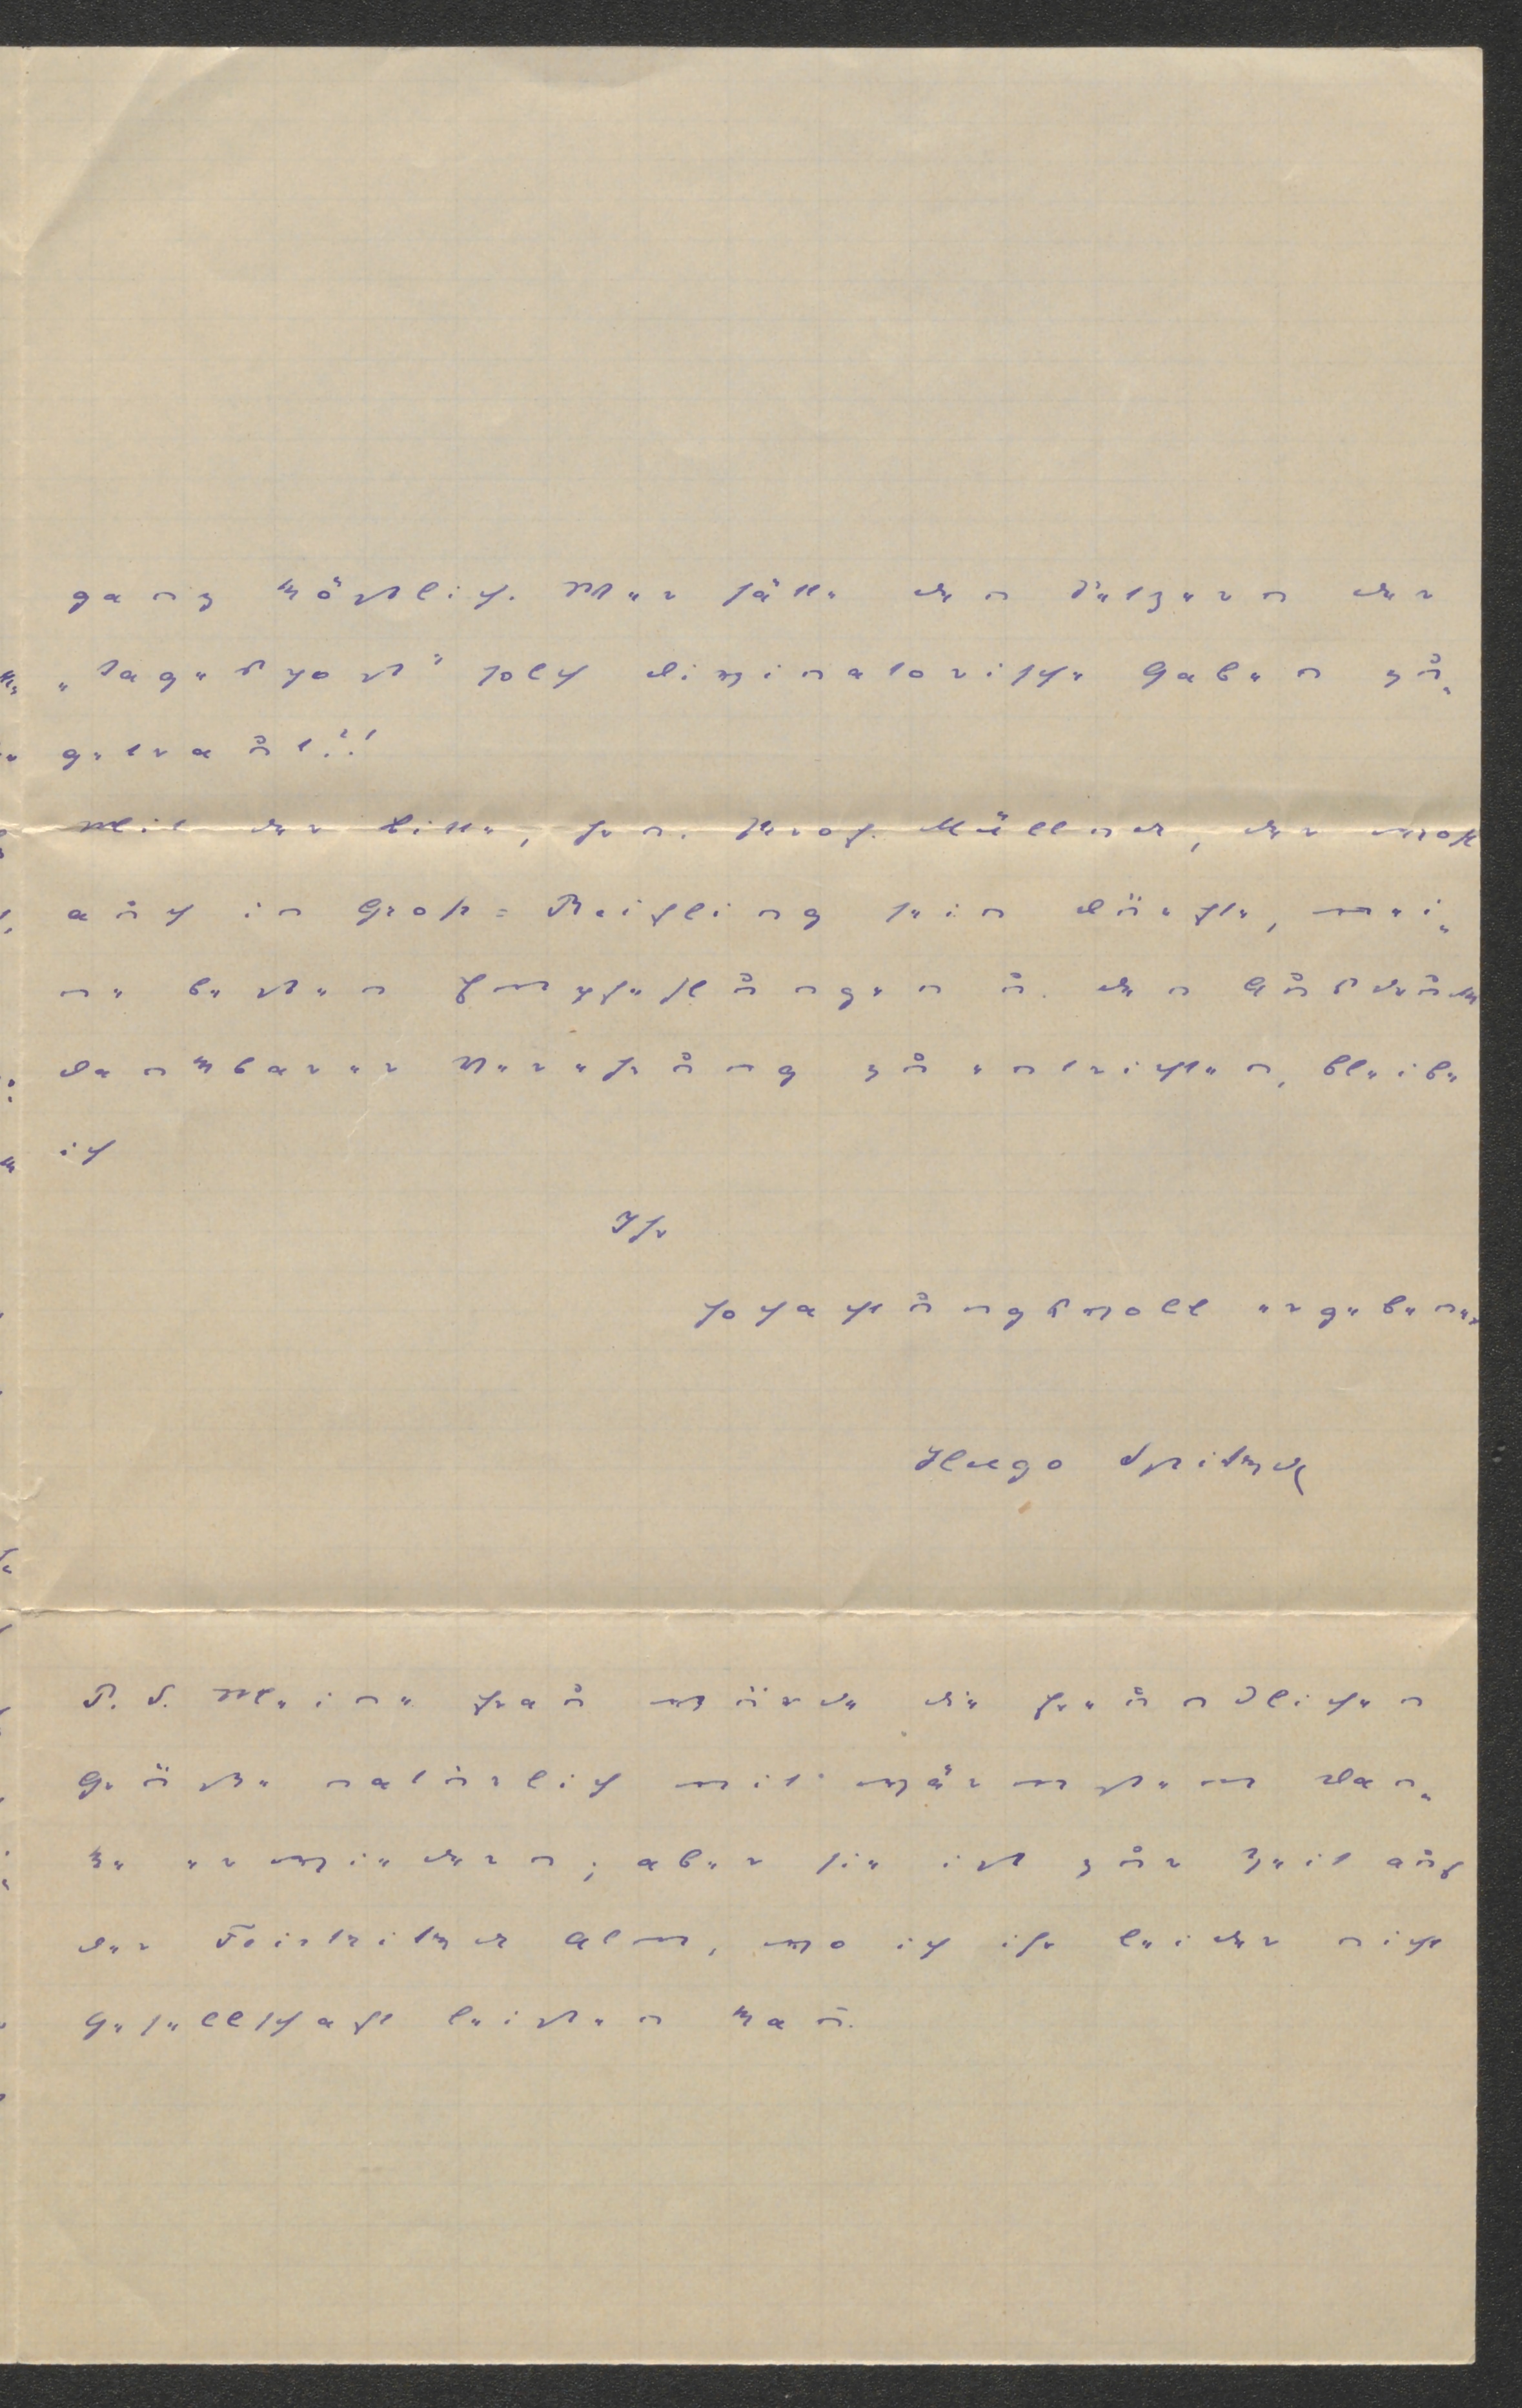 ganz köstlich. Wer hätte den Setzern der
„Tagespost" solch divinatorische Gaben zu-
getraut?!
Mit der Bitte, Hrn. Prof. Müllner, der wohl
auch in Groß-Reifling sein dürfte, mei-
ne besten Empfehlungen u. den Ausdruck
dankbarer Verehrung zu entrichten, bleibe
ich
Ihr
hochachtungsvoll ergebener
Hugo Spitzer
P. S. Meine Frau würde die freundlichen
Grüße natürlich mit wärmstem Dan-
ke erwiedern; aber sie ist zur Zeit auf
der Feistritzer Alm, wo ich ihr leider nicht
Gesellschaft leisten kan̄.